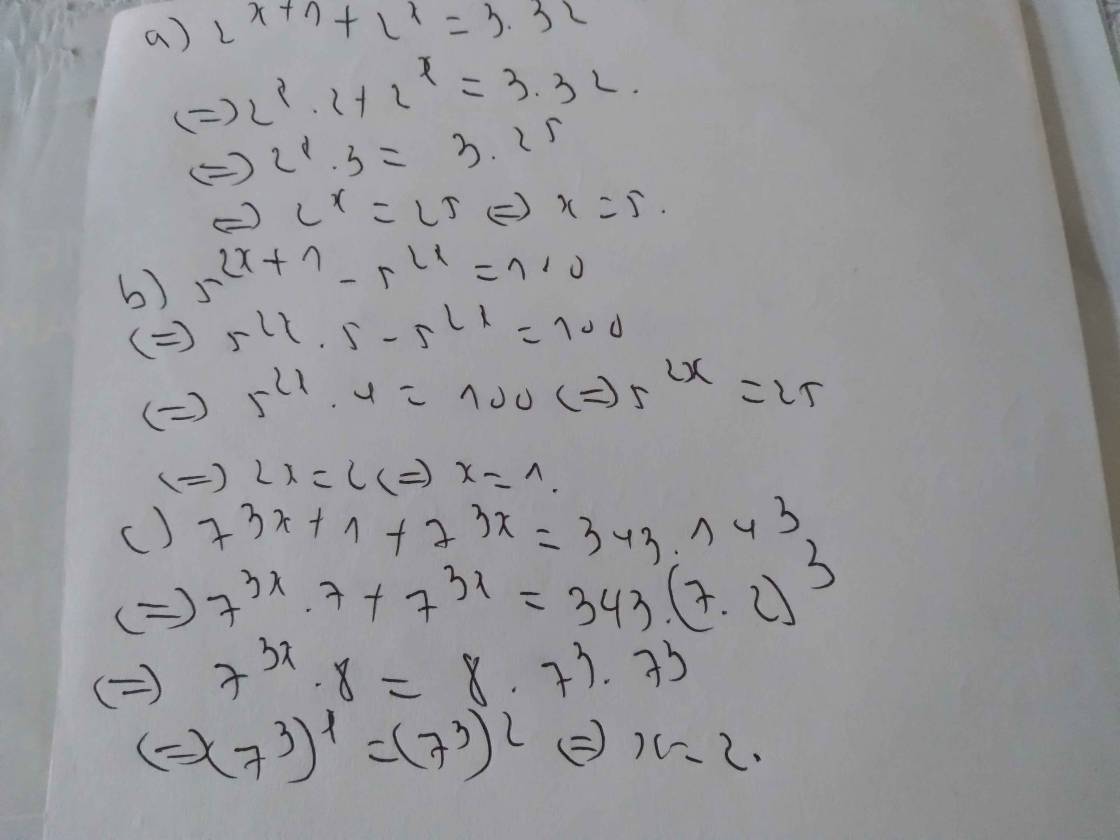 a) 2^{x+1} + 2^x = 3.32
(=) 2^x.2 + 2^x = 3.32.
(=) 2^x.3 = 3.2^5
(=) 2^x = 2^5 (=) x = 5.
b) 5^{2x+1} - 5^{2x} = 100
(=) 5^{2x}.5 - 5^{2x} = 100
(=) 5^{2x}.4 = 100 (=) 5^{2x} = 25
(=) 2x = 2 (=) x = 1.
c) 7^{3x+1} + 7^{3x} = 343.14^3
(=) 7^{3x}.7 + 7^{3x} = 343.(7.2)^3
(=) 7^{3x}.8 = 8.7^3.7^3
(=) (7^3)^x = (7^3)^2 (=) x = 2.